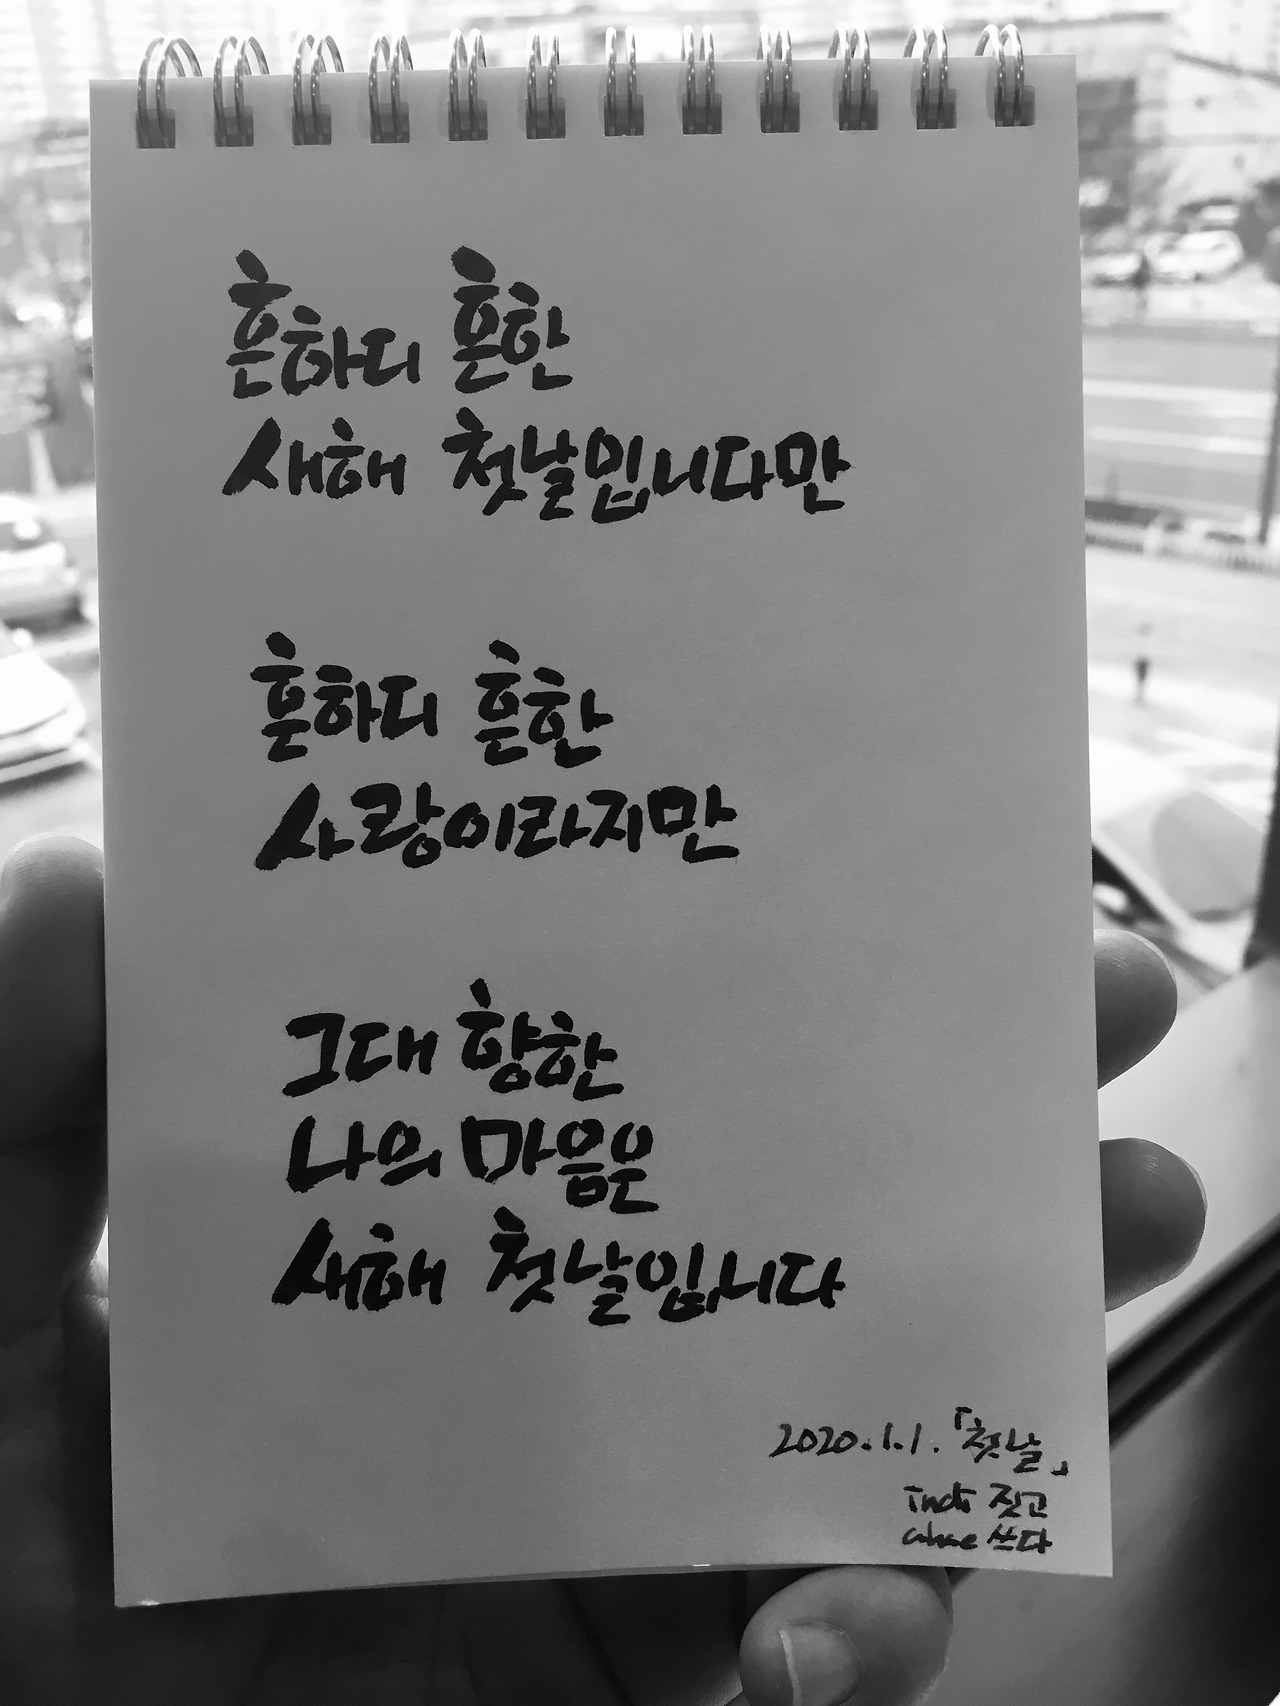 흔하디 흔한
새해 첫날입니다만
흔하디 흔한
사랑이라지만
그대 향한
나의 마음은
새해 첫날입니다
2020.1.1.「첫날」
짓고
쓰다